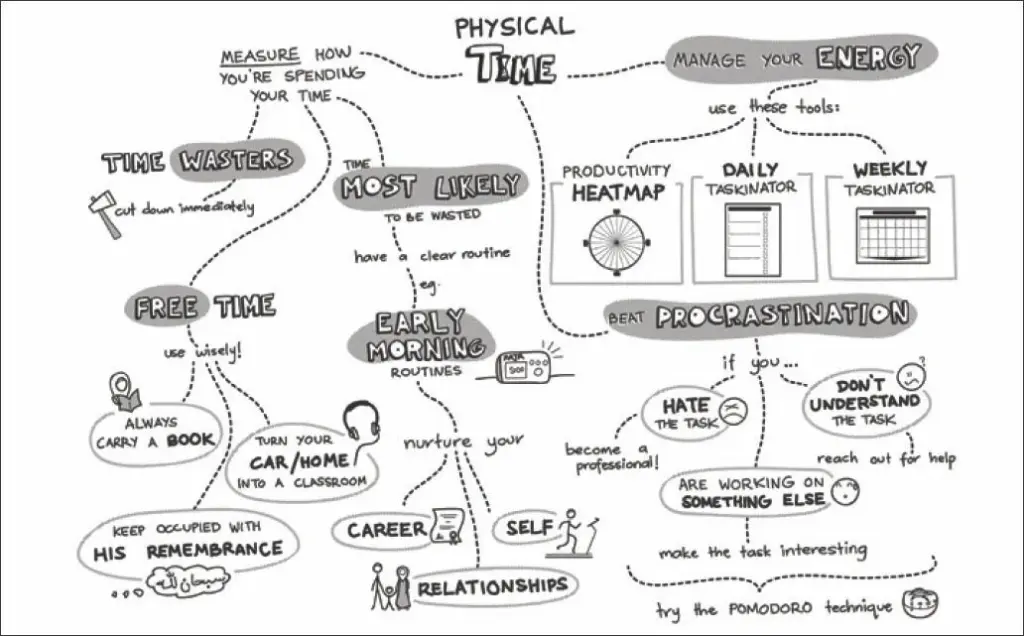 PHYSICAL
TIME
MEASURE HOW
YOU'RE SPENDING
YOUR TIME
TIME WASTERS
cut down immediately
TIME
MOST LIKELY
TO BE WASTED
have a clear routine
eg.
EARLY
MORNING
ROUTINES
nurture your
CAREER
SELF
RELATIONSHIPS
FREE TIME
use wisely!
ALWAYS
CARRY A BOOK
TURN YOUR
CAR/HOME
INTO A CLASSROOM
KEEP OCCUPIED WITH
HIS REMEMBRANCE
سبحان الله
MANAGE YOUR ENERGY
use these tools:
PRODUCTIVITY
HEATMAP
DAILY
TASKINATOR
WEEKLY
TASKINATOR
BEAT PROCRASTINATION
if you...
HATE
THE TASK
become a
professional!
DON'T
UNDERSTAND
THE TASK
?
reach out for help
ARE WORKING ON
SOMETHING ELSE
make the task interesting
try the POMODORO technique